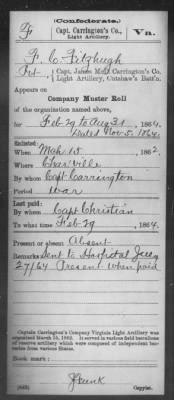 (Confederate.)
F Capt. Carrington's Co., Va.
Light Artillery.
F. C. Fitzhugh
Pvt., Capt. James McD. Carrington's Co.,
Light Artillery, Cutshaw's Batt'n.
Appears on
Company Muster Roll
of the organization named above,
for Feb 29 to Aug 31, 1864.
Dated Nov. 5, 1864.
Enlisted:
When Mch 15, 1862
Where Char'ville
By whom Capt Carrington
Period War
Last paid:
By whom Capt Christian
To what time Feb 29, 1864.
Present or absent Absent
Remarks: Sent to Hospital
27/64 Present when paid
Captain Carrington's Company Virginia Light Artillery was
organized March 15, 1862. It served in various field battalions
of reserve artillery which were composed of independent bat-
teries from various States.
Book mark:
(642)
Copyist.